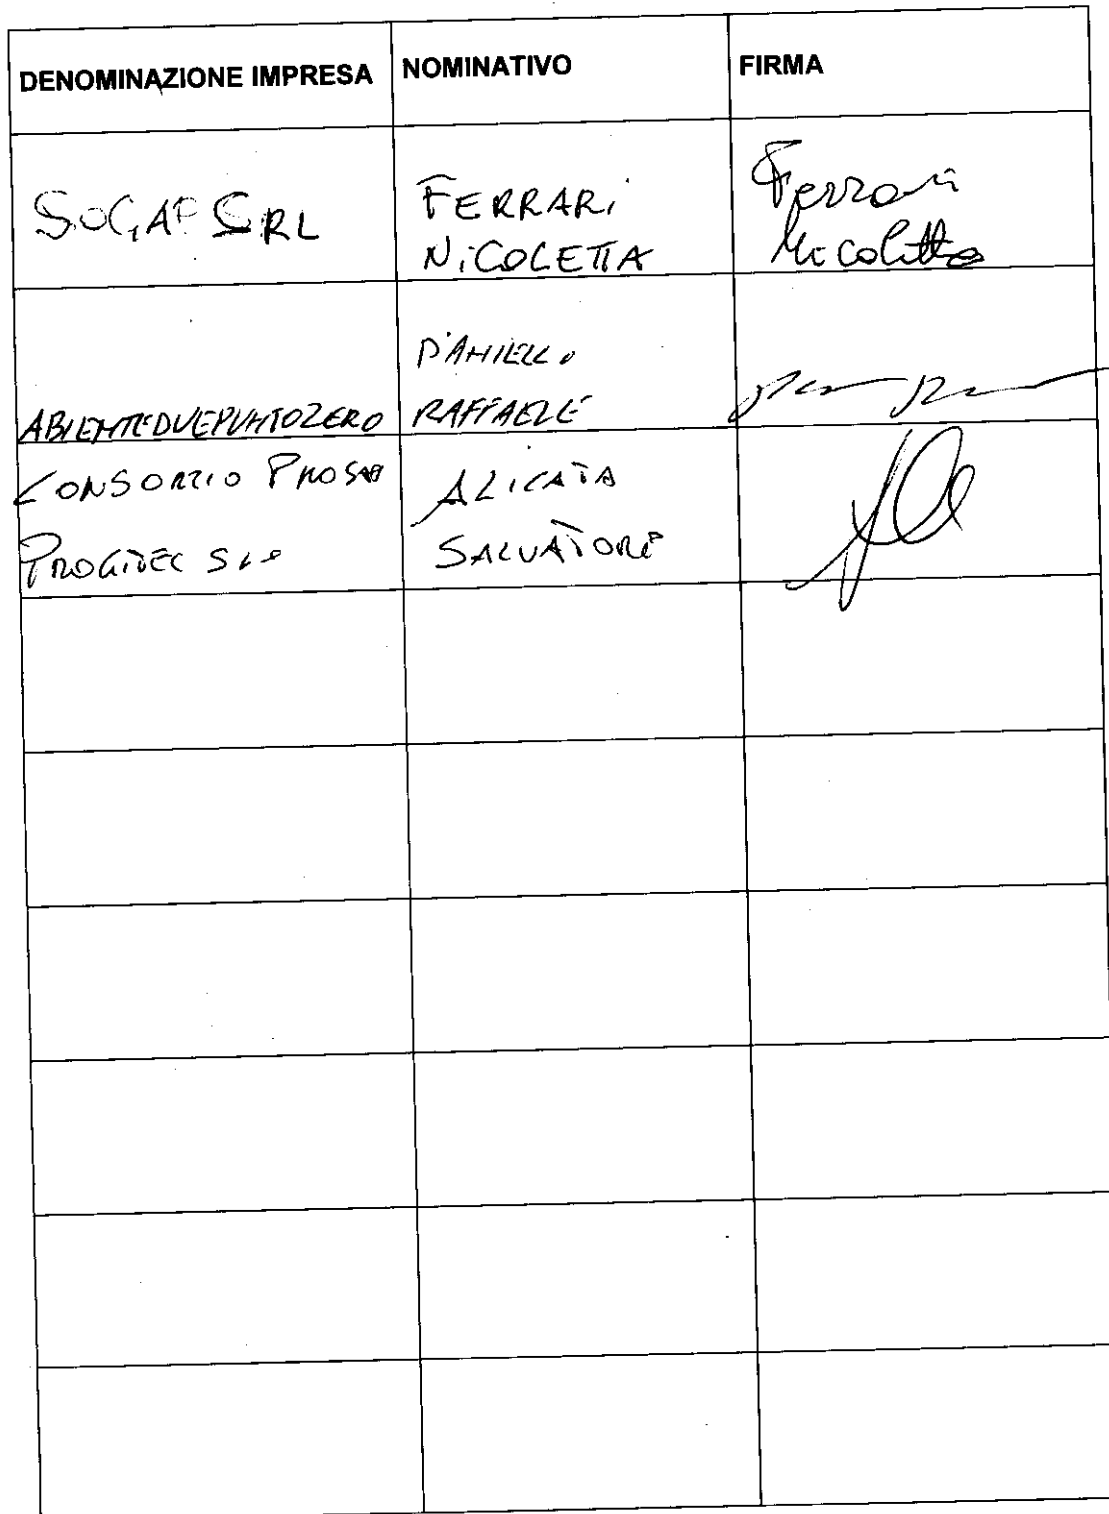 DENOMINAZIONE IMPRESA NOMINATIVO FIRMA
SOGAP SRL
FERRARI
NICOLETTA
Ferrari
Nicoletta
ABIENTEDUEPUNTOZERO
D'ANIELLO
RAFFAELE
CONSORZIO
PROGITEC
ALICATA
SALVATORE